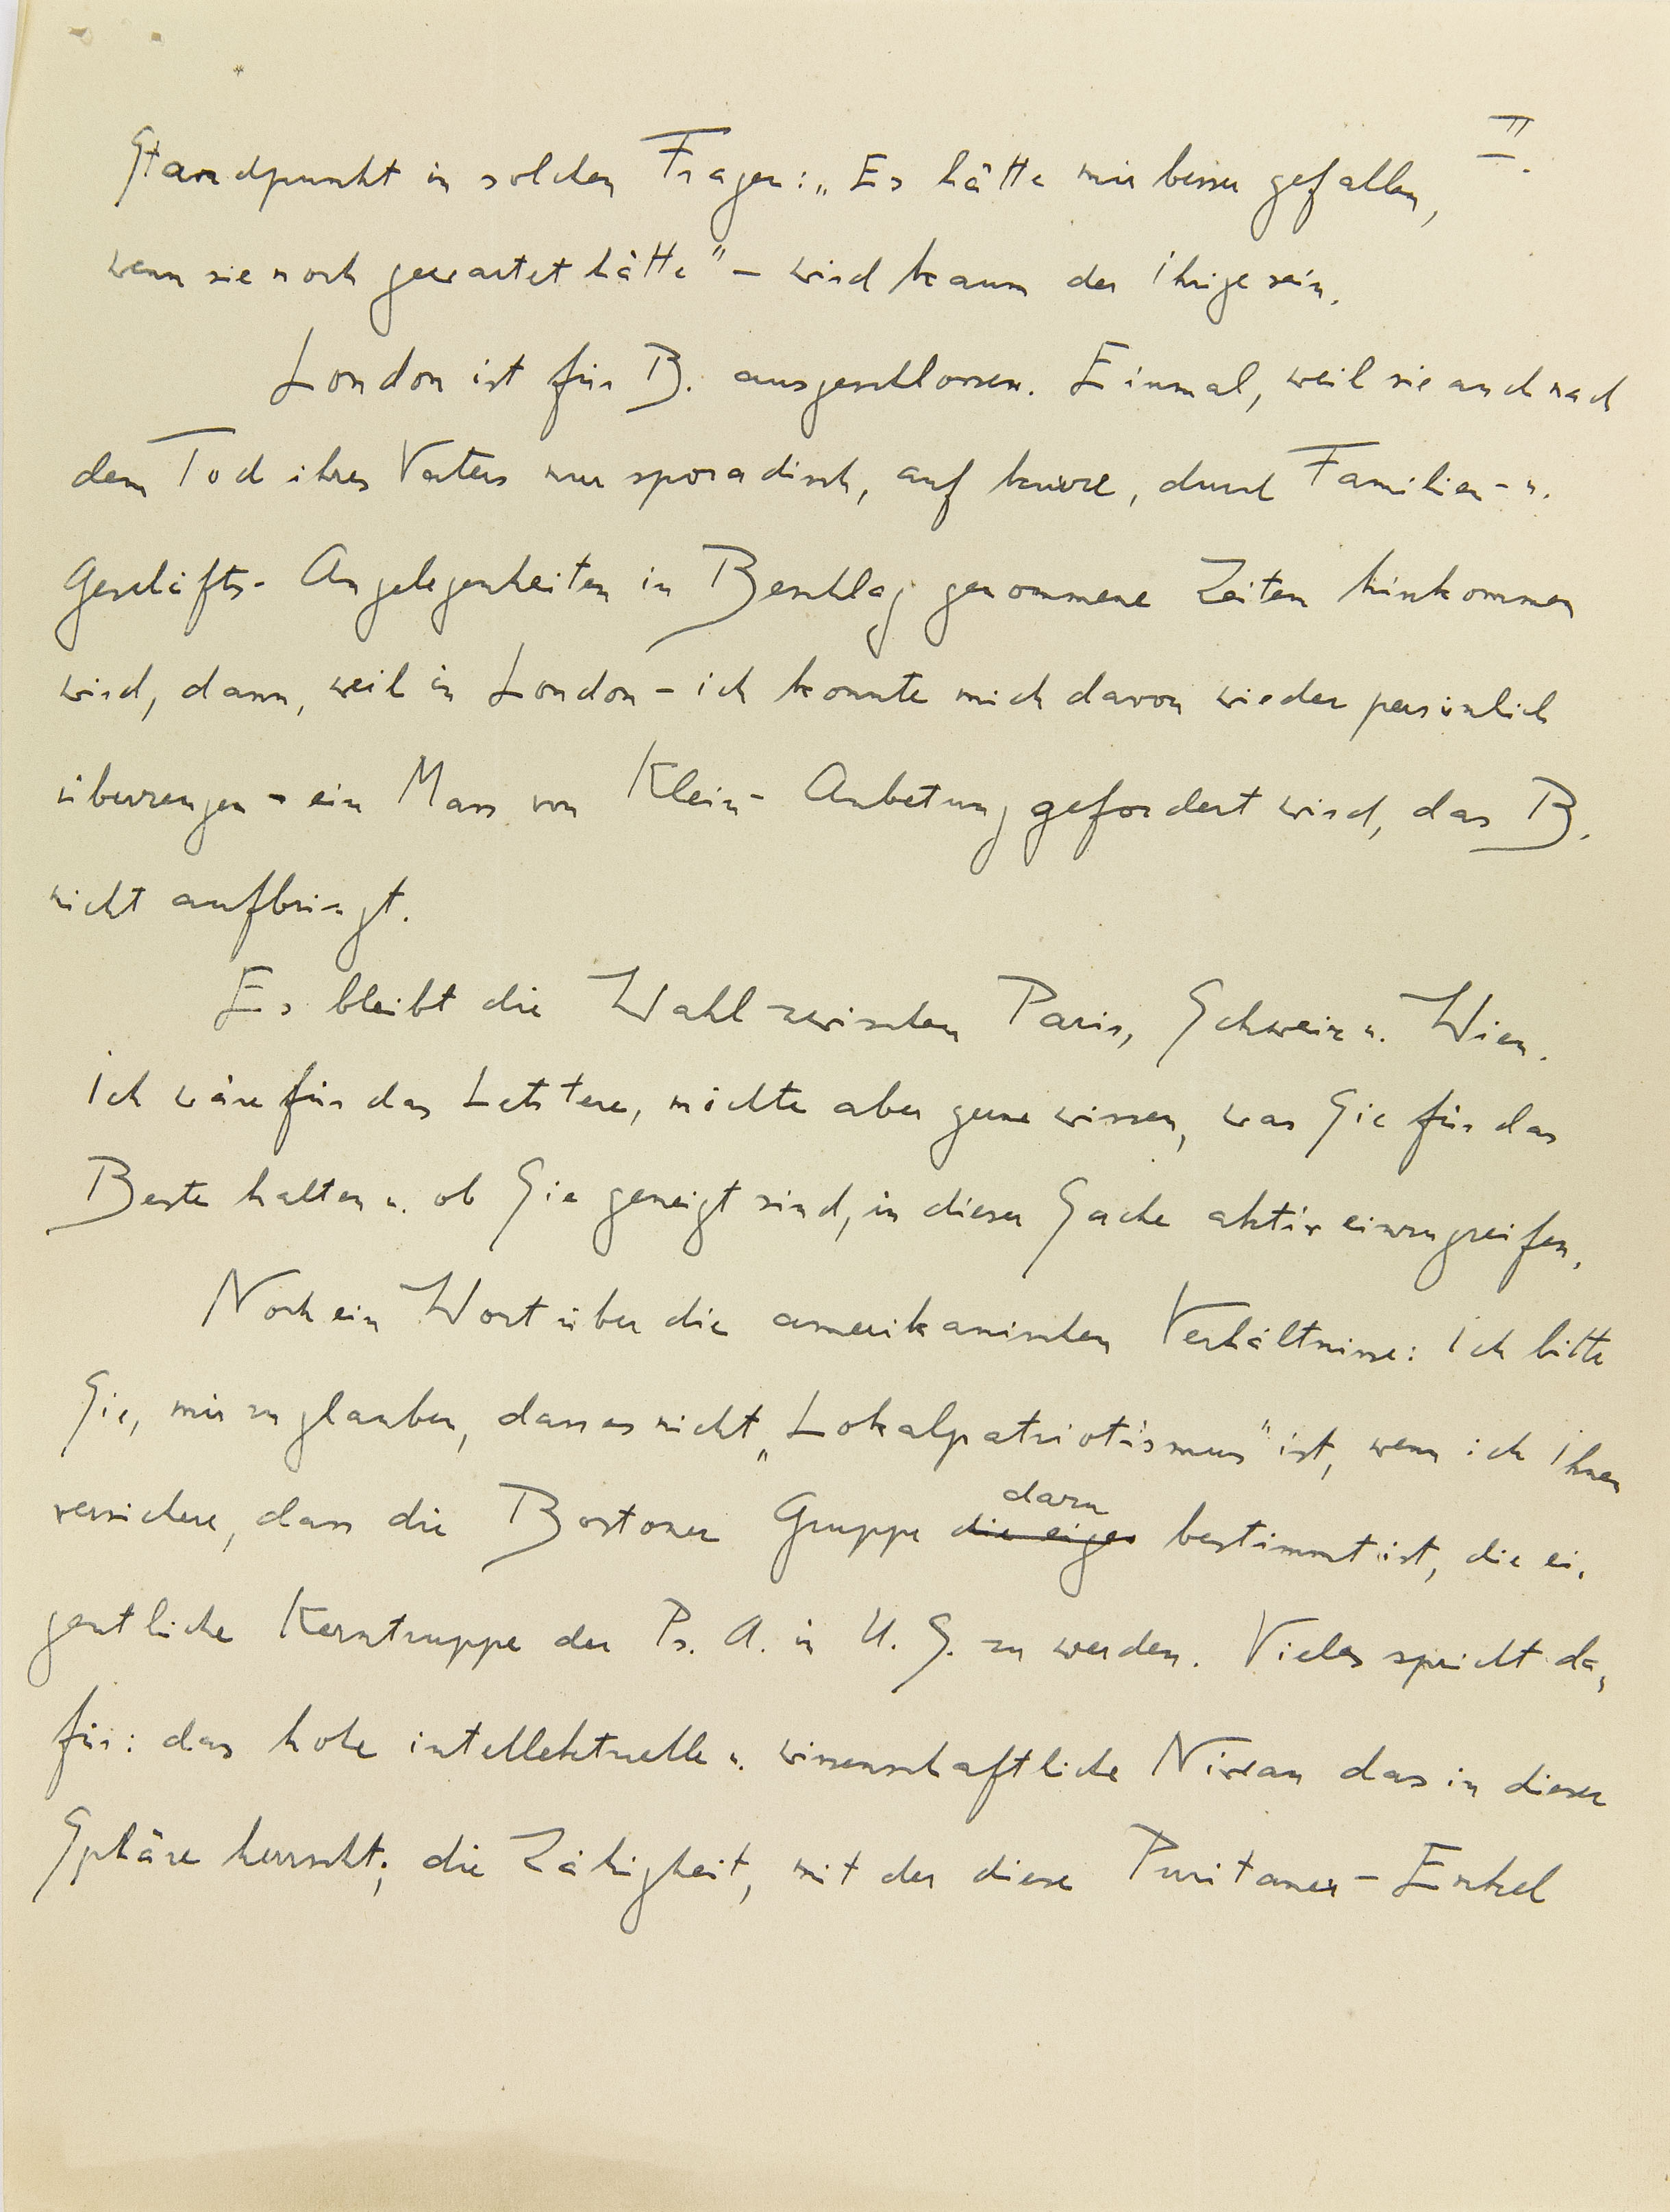 II.
Standpunkt in solchen Fragen: „Es hätte mir besser gefallen,
wenn sie noch gewartet hätte" – wird kaum der Ihrige sein.
London ist für B. ausgeschlossen. Einmal, weil sie auch nach
dem Tod ihres Vaters nur sporadisch, auf kurze, durch Familien- u.
Geschäfts-Angelegenheiten in Beschlag genommene Zeiten hinkommen
wird, dann, weil in London – ich konnte mich davon wieder persönlich
überzeugen – ein Mass von Klein-Anbetung gefordert wird, das B.
nicht aufbringt.
Es bleibt die Wahl zwischen Paris, Schweiz u. Wien.
Ich wäre für das Letztere, möchte aber gerne wissen, was Sie für das
Beste halten u. ob Sie geneigt sind, in dieser Sache aktiv einzugreifen.
Noch ein Wort über die amerikanischen Verhältnisse: Ich bitte
Sie, mir zu glauben, dass es nicht „Lokalpatriotismus" ist, wenn ich Ihnen
versichere, dass die Bostoner Gruppe die eigen dazu bestimmt ist, die ei-
gentliche Kerntruppe der Ps. A. in U. S. zu werden. Vieles spricht da-
für: das hohe intellektuelle u. wissenschaftliche Niveau das in dieser
Sphäre herrscht; die Zähigkeit, mit der diese Puritaner-Enkel